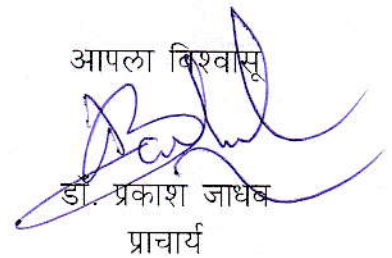 आपला विश्वासू
डॉ. प्रकाश जाधव
प्राचार्य